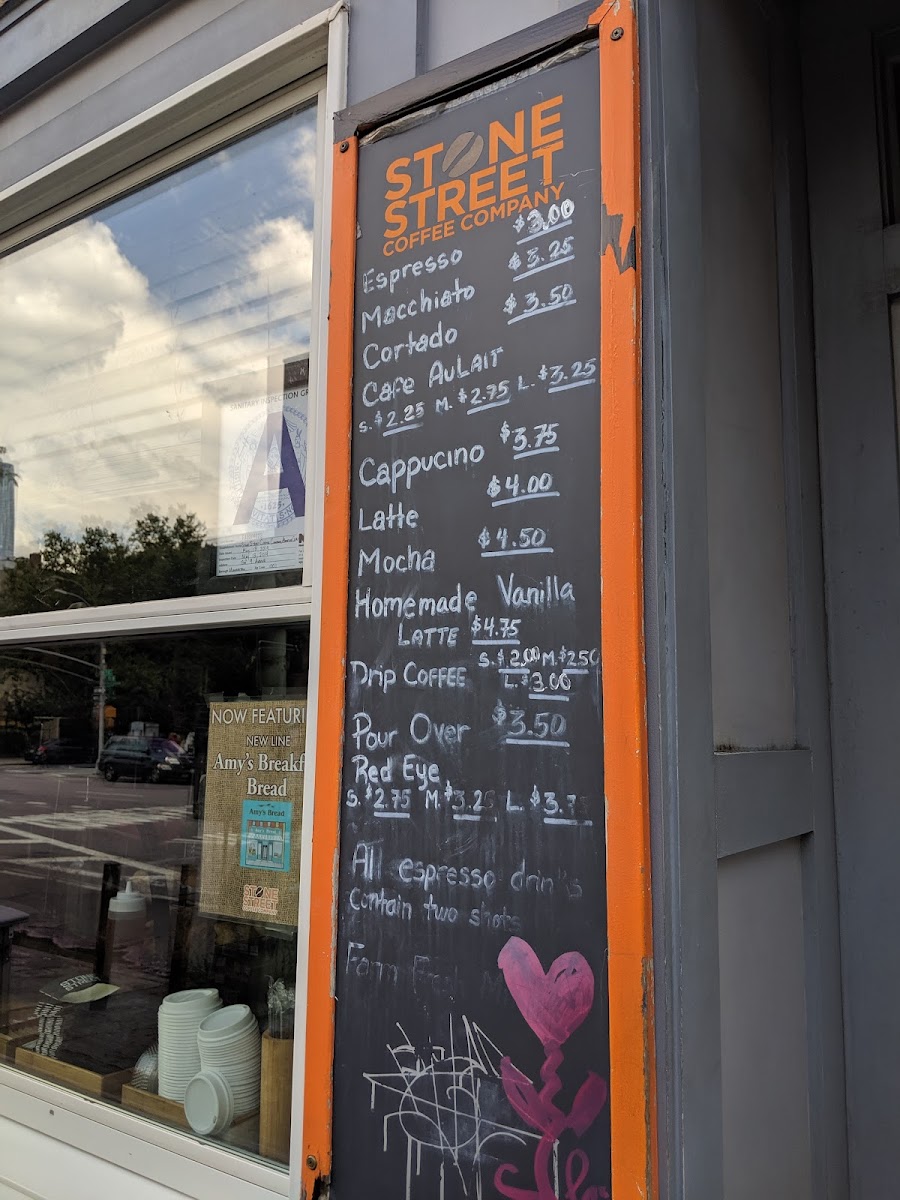 STONE
STREET
COFFEE COMPANY
Espresso $3.00
Macchiato $3.25
Cortado $3.50
Cafe AuLAIT
S. $2.25 M. $2.75 L. $3.25
Cappucino $3.75
Latte $4.00
Mocha $4.50
Homemade Vanilla
LATTE $4.75
Drip COFFEE S. $2.00 M. $2.50
L. $3.00
Pour Over $3.50
Red Eye
S. $2.75 M. $3.25 L. $3.7
All espresso drinks
Contain two shots
Farm
SANITARY INSPECTION GR
A
NOW FEATURI
NEW LINE
Amy's Breakf
Bread
Amy's Bread
STONE
STREET